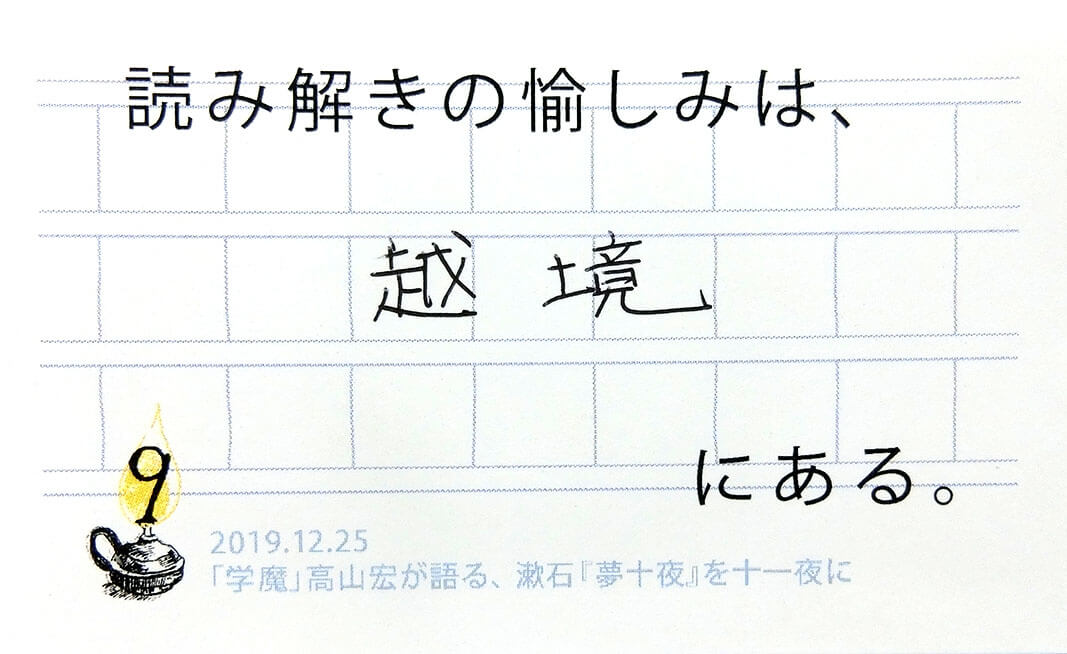 読み解きの愉しみは、
越境
にある。
9
2019.12.25
「学魔」高山宏が語る、漱石『夢十夜』を十一夜に